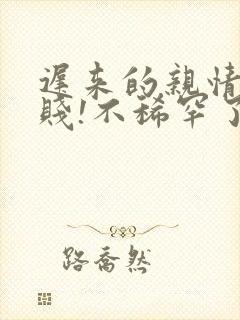 遲来的親情
賤!不稀罕了
路喬然